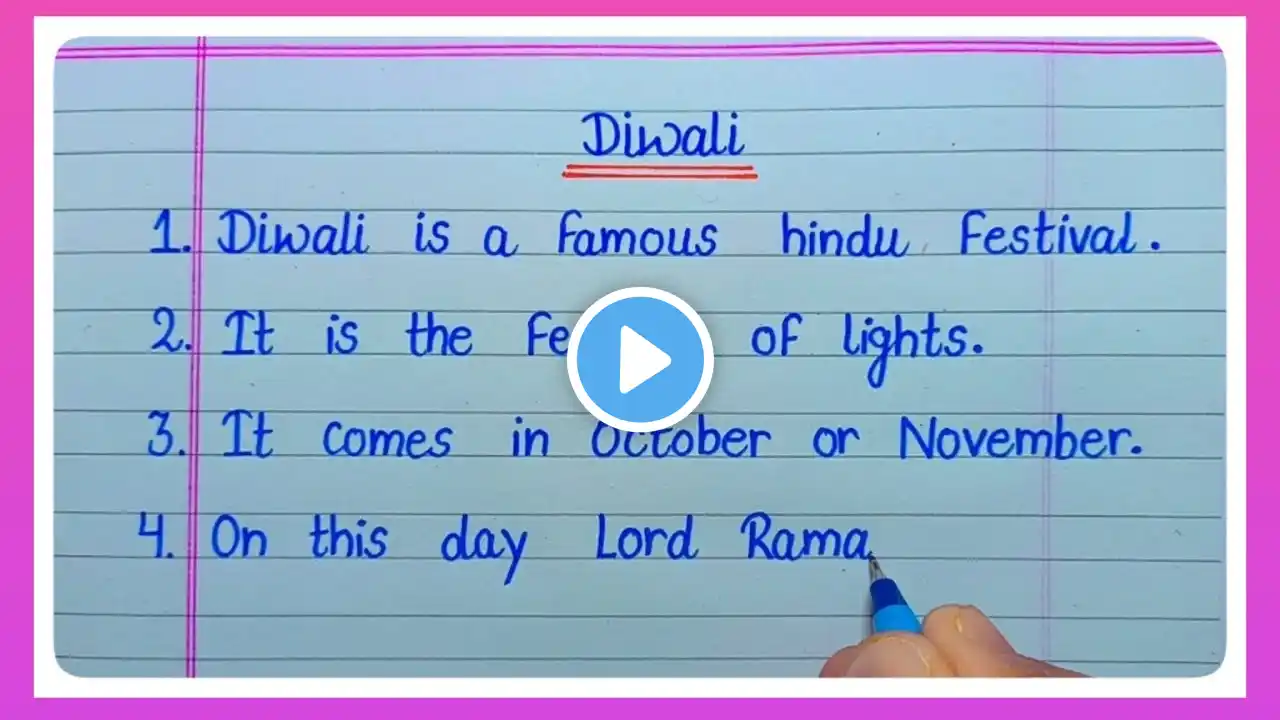 Diwali
1. Diwali is a famous hindu Festival.
2. It is the of lights.
3. It comes in October or November.
4. On this day Lord Rama